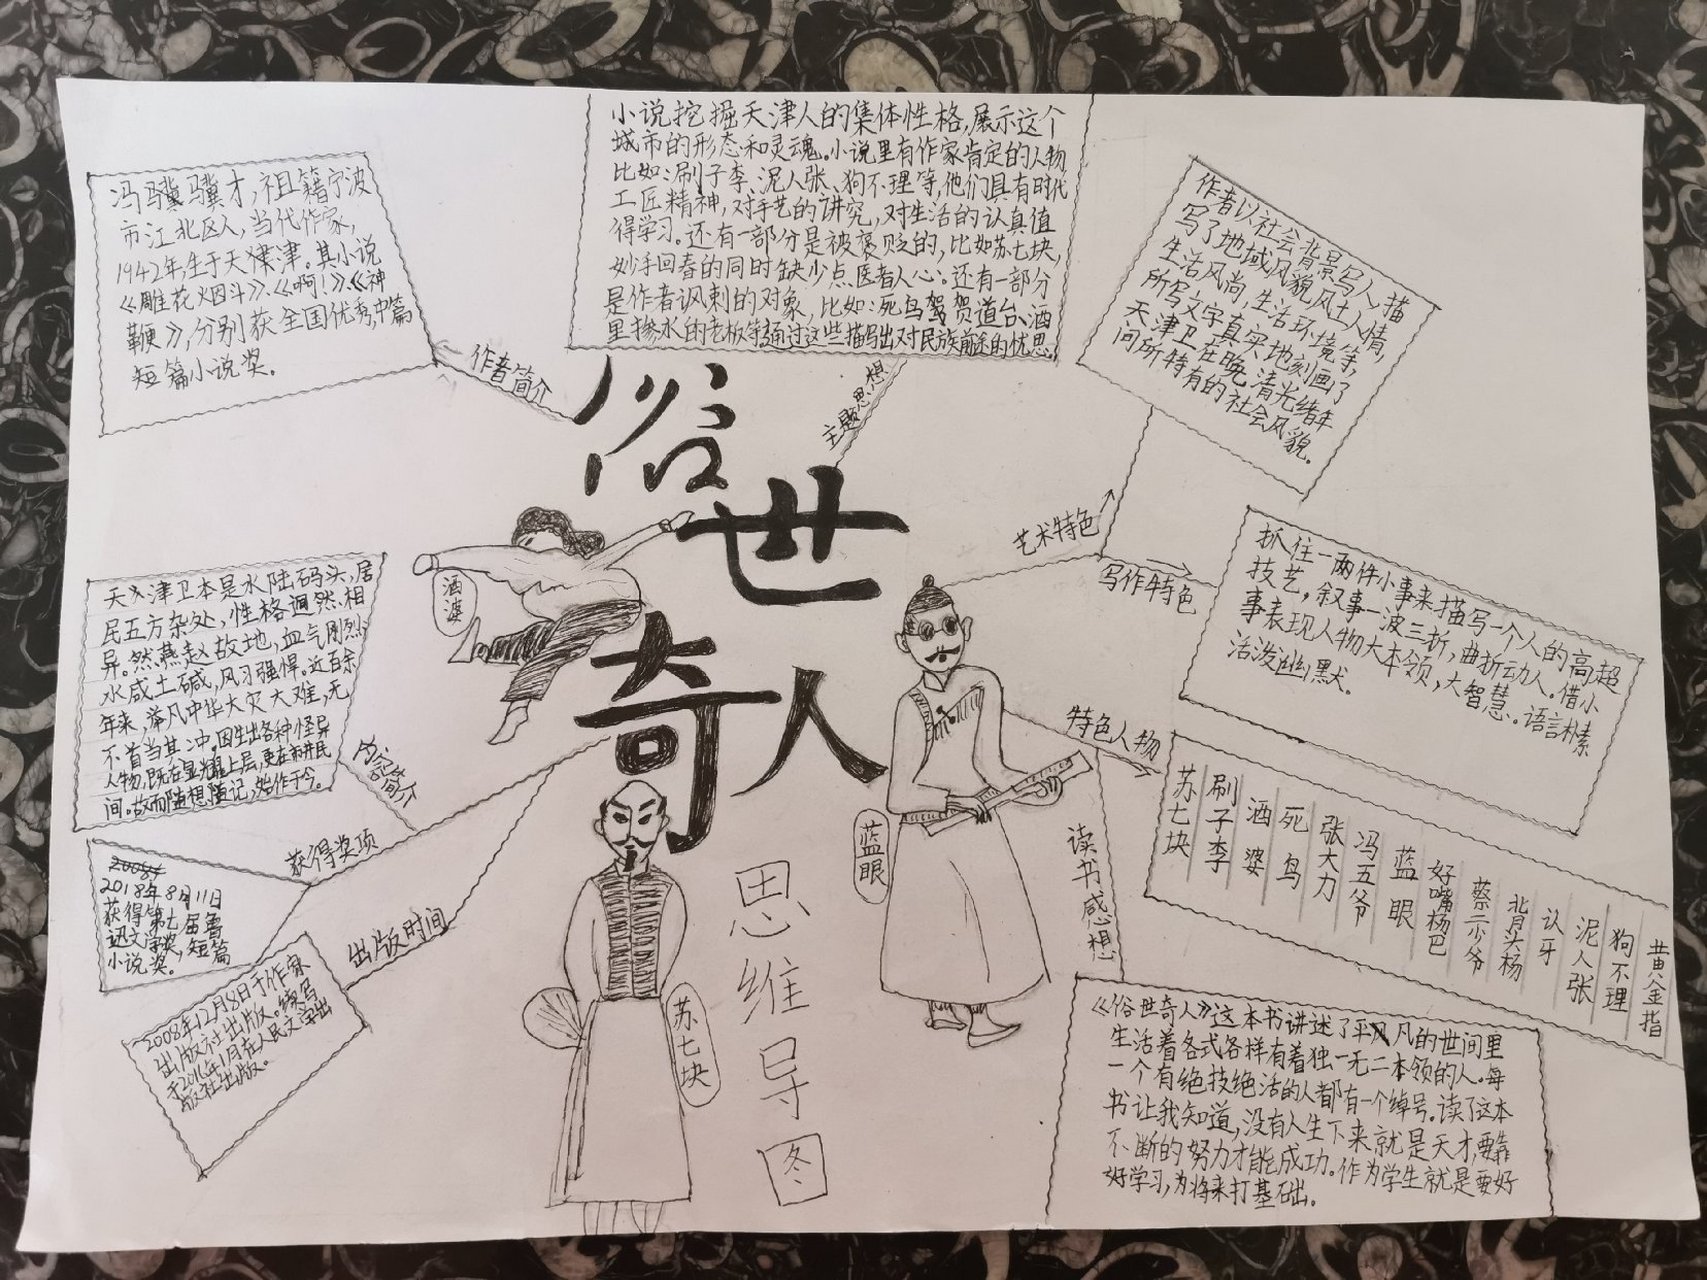 俗世奇人
思维导图
作者简介
冯骥才，祖籍宁波
市江北区人，当代作家，
1942年，生于天津。其小说
《雕花烟斗》、《啊！》、《神
鞭》，分别获全国优秀，中篇
短篇小说奖。
主题思想
小说挖掘天津人的集体性格，展示这个
城市的形态和灵魂。小说里有作家肯定的人物
比如：刷子李、泥人张、狗不理等，他们具有时代
工匠精神，对手艺的讲究，对生活的认真值
得学习。还有一部分是被褒贬的，比如苏七块，
妙手回春的同时缺少点医者人心：还有一部分
是作者讽刺的对象，比如：死鸟驾贺道台、酒
里掺水的老板等通过这些描写出对民族前途的忧思。
艺术特色
作者以社会背景写人，描
写了地域风貌风土人情，
生活风尚，生活环境等，
所写文字真实地刻画了
天津卫在晚清光绪年
间所特有的社会风貌。
写作特色
抓住一两件小事来描写一个人的高超
技艺，叙事一波三折，曲折动人。借小
事表现人物大本领，大智慧。语言朴素
活泼幽默。
特色人物
苏七块
刷子李
酒婆
死鸟
张大力
冯五爷
蓝眼
好嘴杨巴
蔡二少爷
背头杨
认牙
泥人张
狗不理
黄金指
读书感想
《俗世奇人》这本书讲述了平凡的世间里
生活着各式各样有着独一无二本领的人。每
一个有绝技绝活的人都有一个绰号。读了这本
书让我知道，没有人生下来就是天才，要靠
不断的努力才能成功。作为学生就是要好
好学习，为将来打基础。
内容简介
天津卫本是水陆码头，居
民五方杂处，性格迥然相
异。然燕赵故地，血气刚烈
水咸土碱，风习强悍。近百余
年来，举凡中华大灾大难，无
不首当其冲。因生出各种怪异
人物，既在显耀上层，更在市井民
间。故而随想随记，始作于今。
获得奖项
2018年8月11日
获得第七届鲁
迅文学奖，短篇
小说奖。
出版时间
2008年12月8日于作家
出版社出版。续写
于2016年1月在人民文学出
版社出版。
酒婆
蓝眼
苏七块